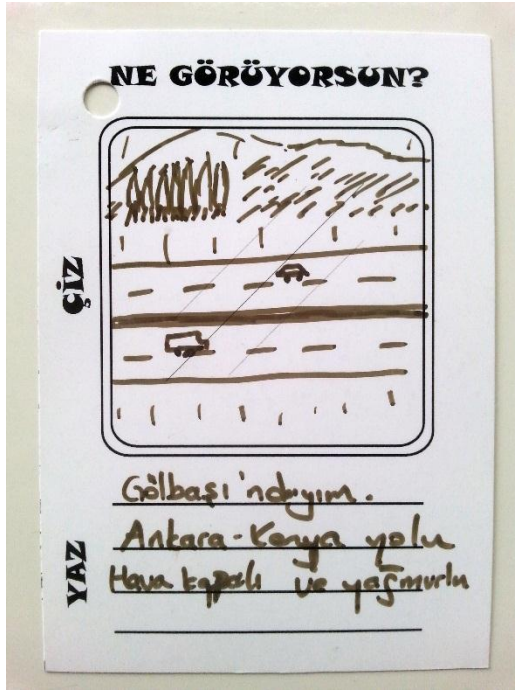 NE GÖRÜYORSUN?
ÇİZ
YAZ
Gölbaşı'ndayım.
Ankara-Konya yolu
Hava kapalı ve yağmurlu